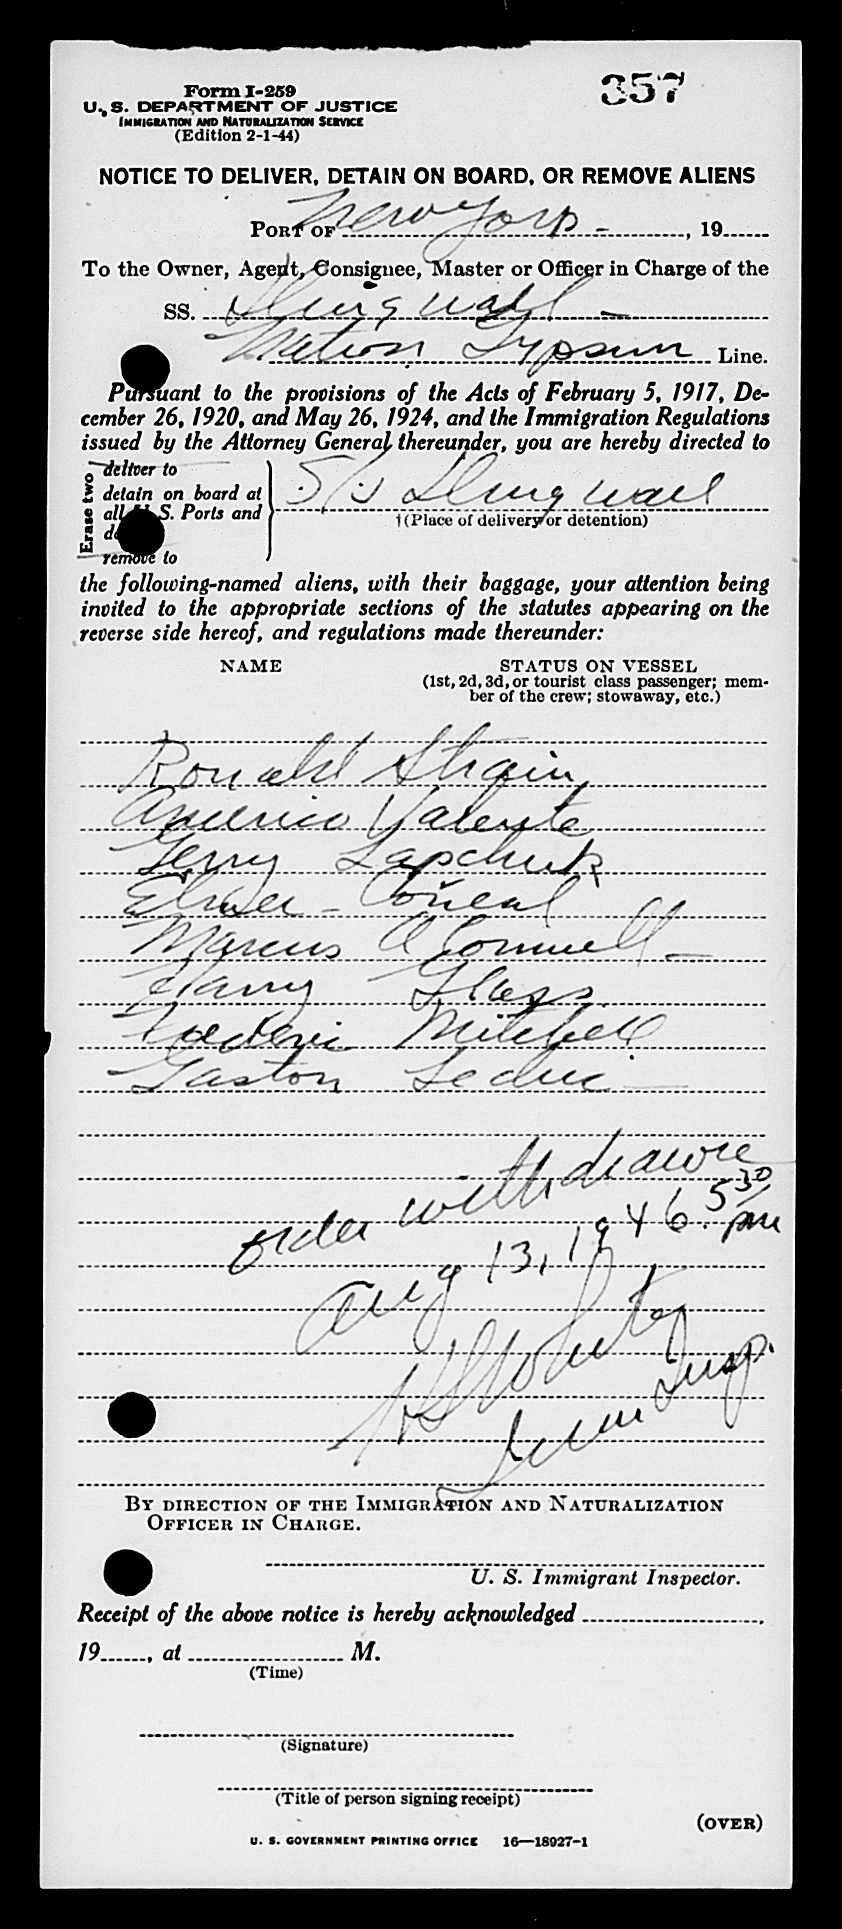 357
Form I-259
U. S. DEPARTMENT OF JUSTICE
IMMIGRATION AND NATURALIZATION SERVICE
(Edition 2-1-44)
NOTICE TO DELIVER, DETAIN ON BOARD, OR REMOVE ALIENS
PORT OF New York - , 19
To the Owner, Agent, Consignee, Master or Officer in Charge of the
SS. Dingwall -
Line.
Pursuant to the provisions of the Acts of February 5, 1917, De-
cember 26, 1920, and May 26, 1924, and the Immigration Regulations
issued by the Attorney General thereunder, you are hereby directed to
Erase two
deliver to
detain on board at
all U. S. Ports and
remove to
S/S Dingwall
†(Place of delivery or detention)
the following-named aliens, with their baggage, your attention being
invited to the appropriate sections of the statutes appearing on the
reverse side hereof, and regulations made thereunder:
NAME STATUS ON VESSEL
(1st, 2d, 3d, or tourist class passenger; mem-
ber of the crew; stowaway, etc.)
Ronald Strain
Americo Valente
Gerry Lapchuk
Elmer -
Marcus O Connell -
Harry Glass
Frederic Mitchell
Gaston Leduc -
order withdrawn
Aug 13, 1946. 5 30/pm
Insp.
BY DIRECTION OF THE IMMIGRATION AND NATURALIZATION
OFFICER IN CHARGE.
U. S. Immigrant Inspector.
Receipt of the above notice is hereby acknowledged ,
19 , at M.
(Time)
(Signature)
(Title of person signing receipt)
(OVER)
U. S. GOVERNMENT PRINTING OFFICE 16—18927-1